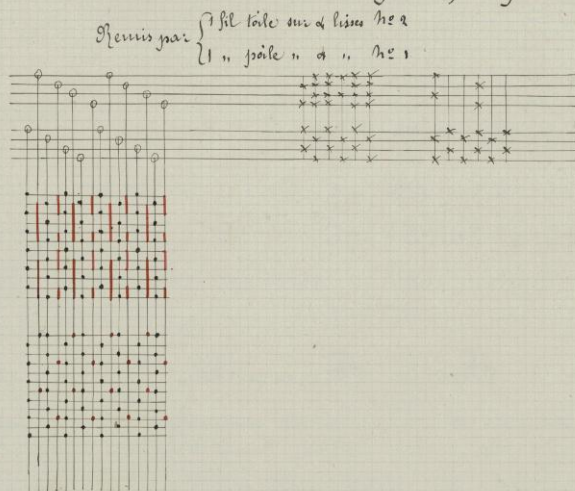 Remis par { 1 fil toile sur 4 lisses No 2
{ 1 " poile " 4 " No 1